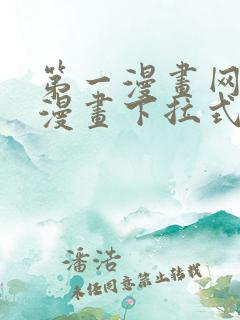 第一漫畫网
漫畫下拉式
潘浩
未经同意禁止转载